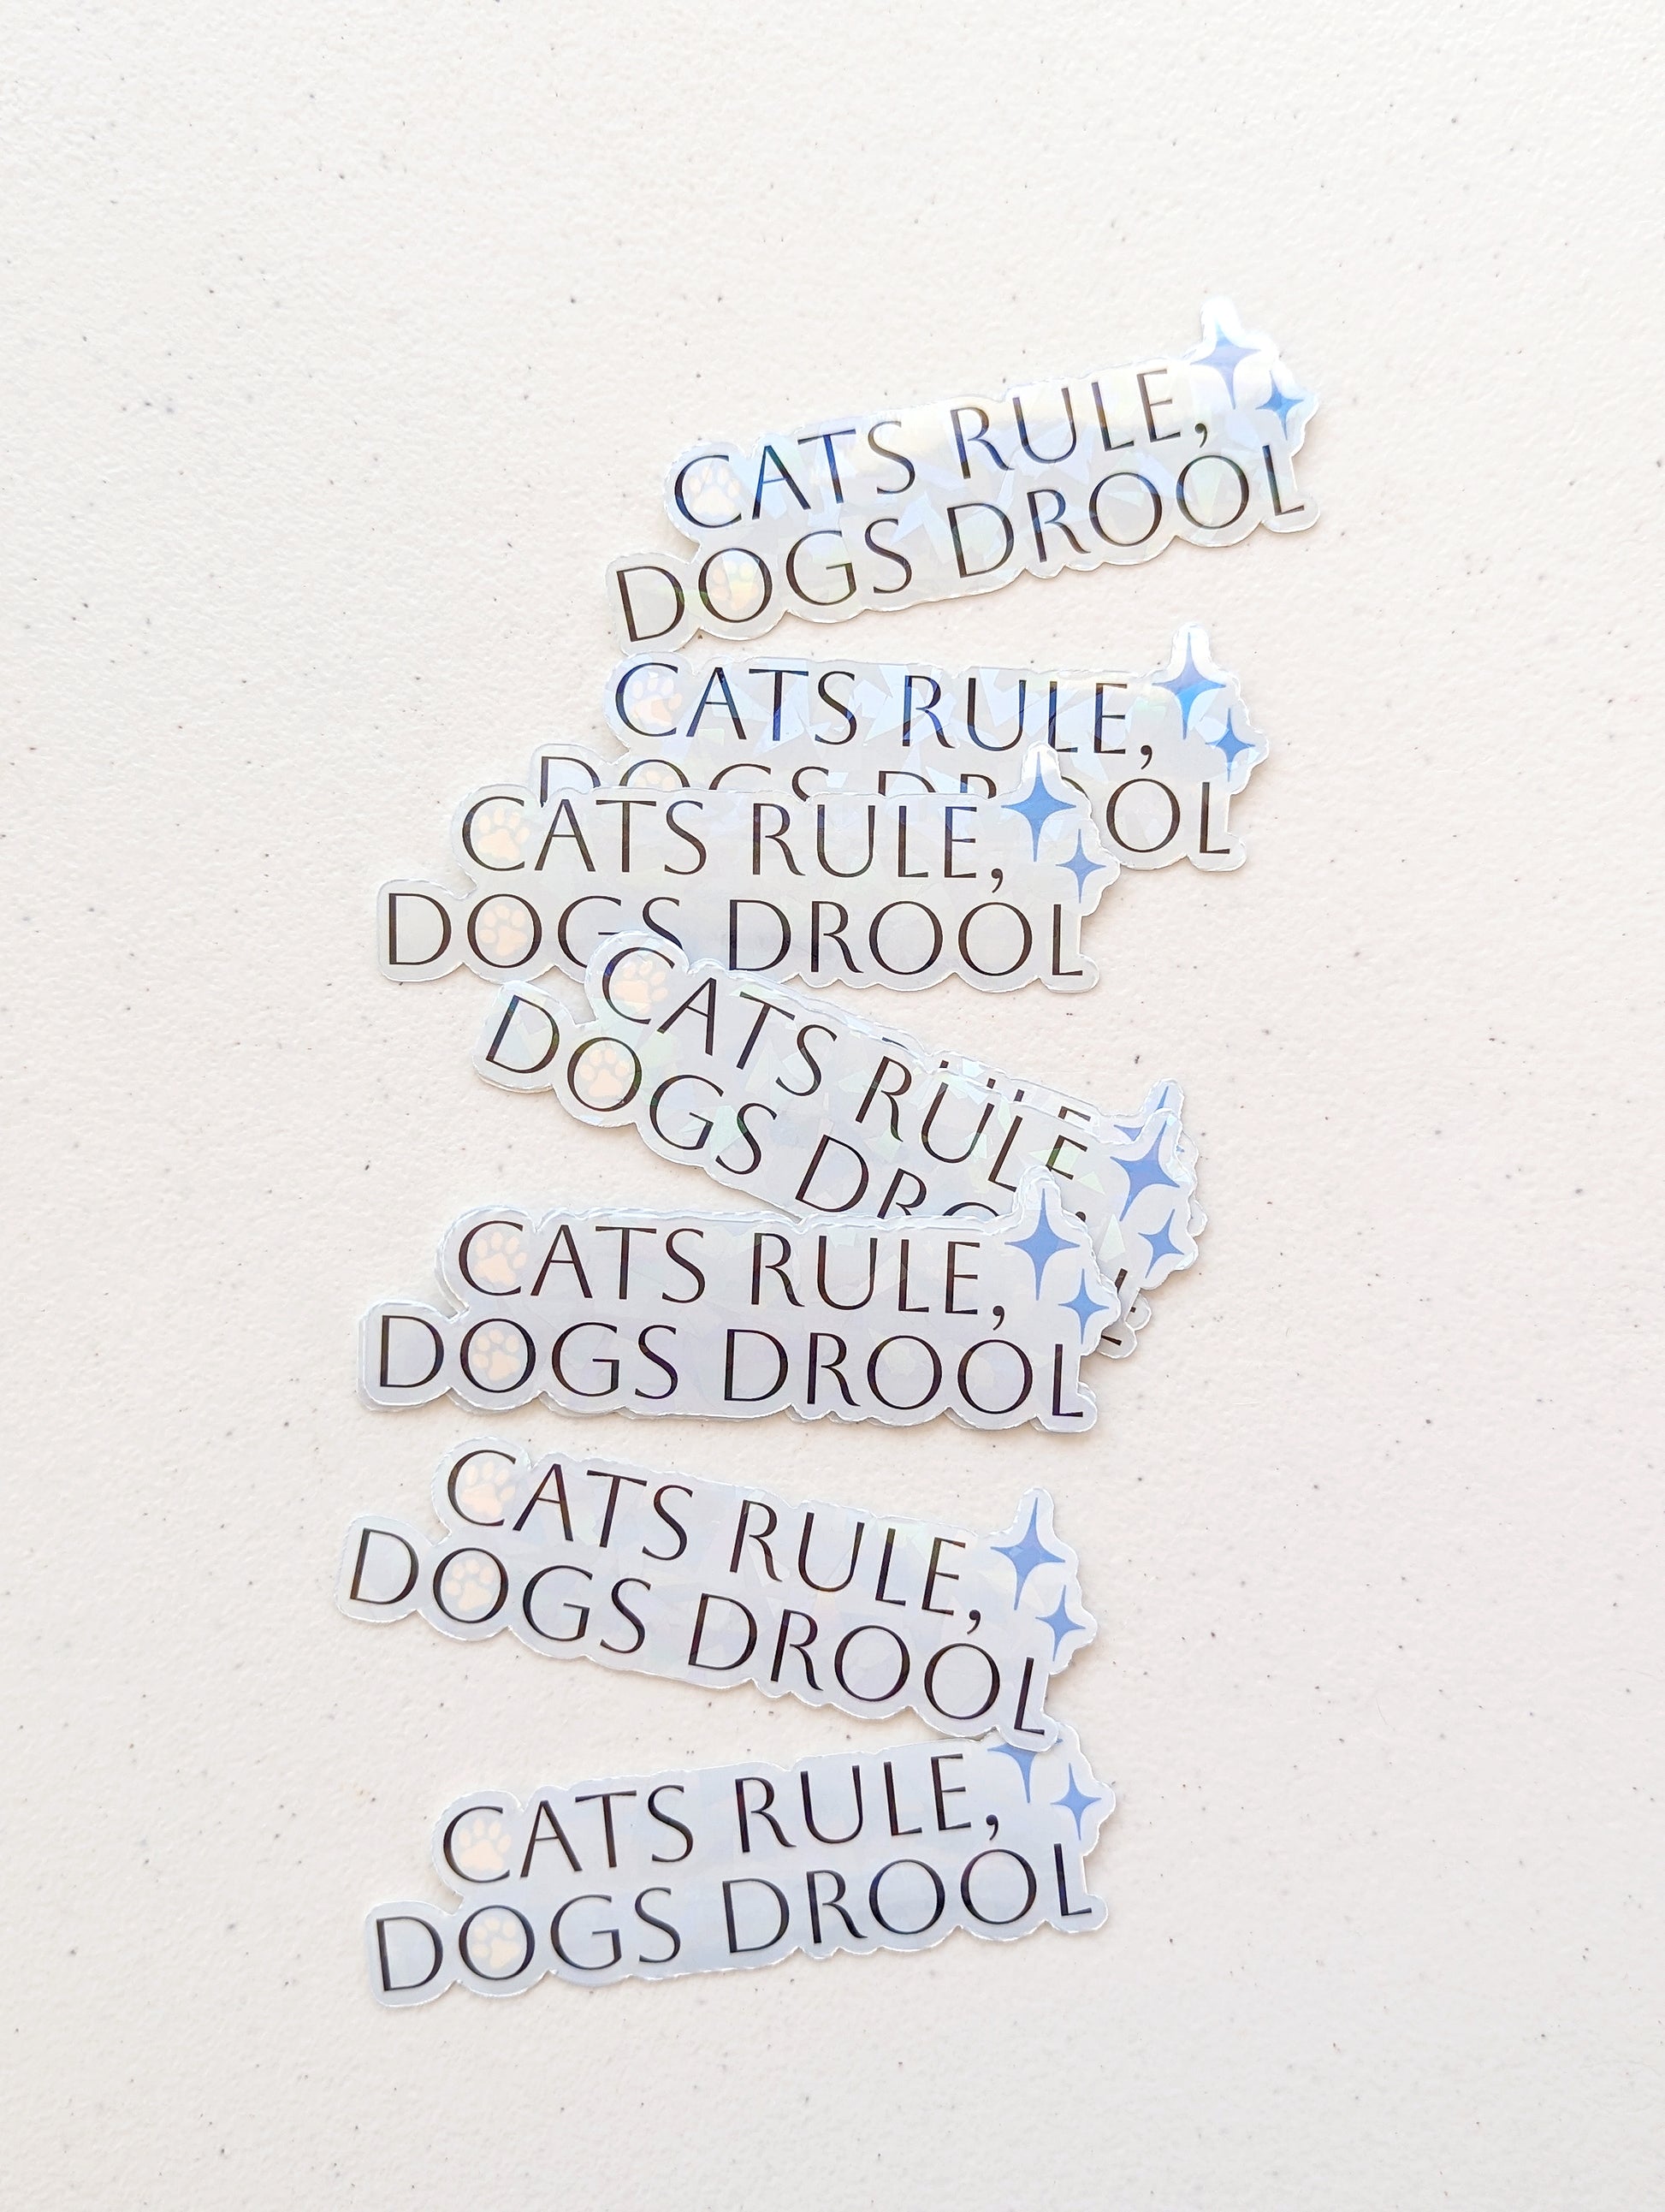 CATS RULE,
DOGS DROOL
CATS RULE,
DOGS DROOL
CATS RULE,
DOGS DROOL
CATS RULE
DOGS DRO
CATS RULE,
DOGS DROOL
CATS RULE,
DOGS DROOL
CATS RULE,
DOGS DROOL